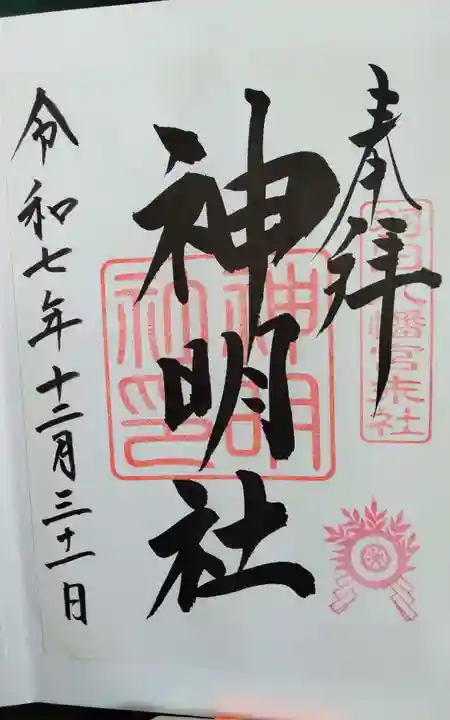 奉拝
八幡宮末社
神明社
神明社印
令和七年十二月三十一日